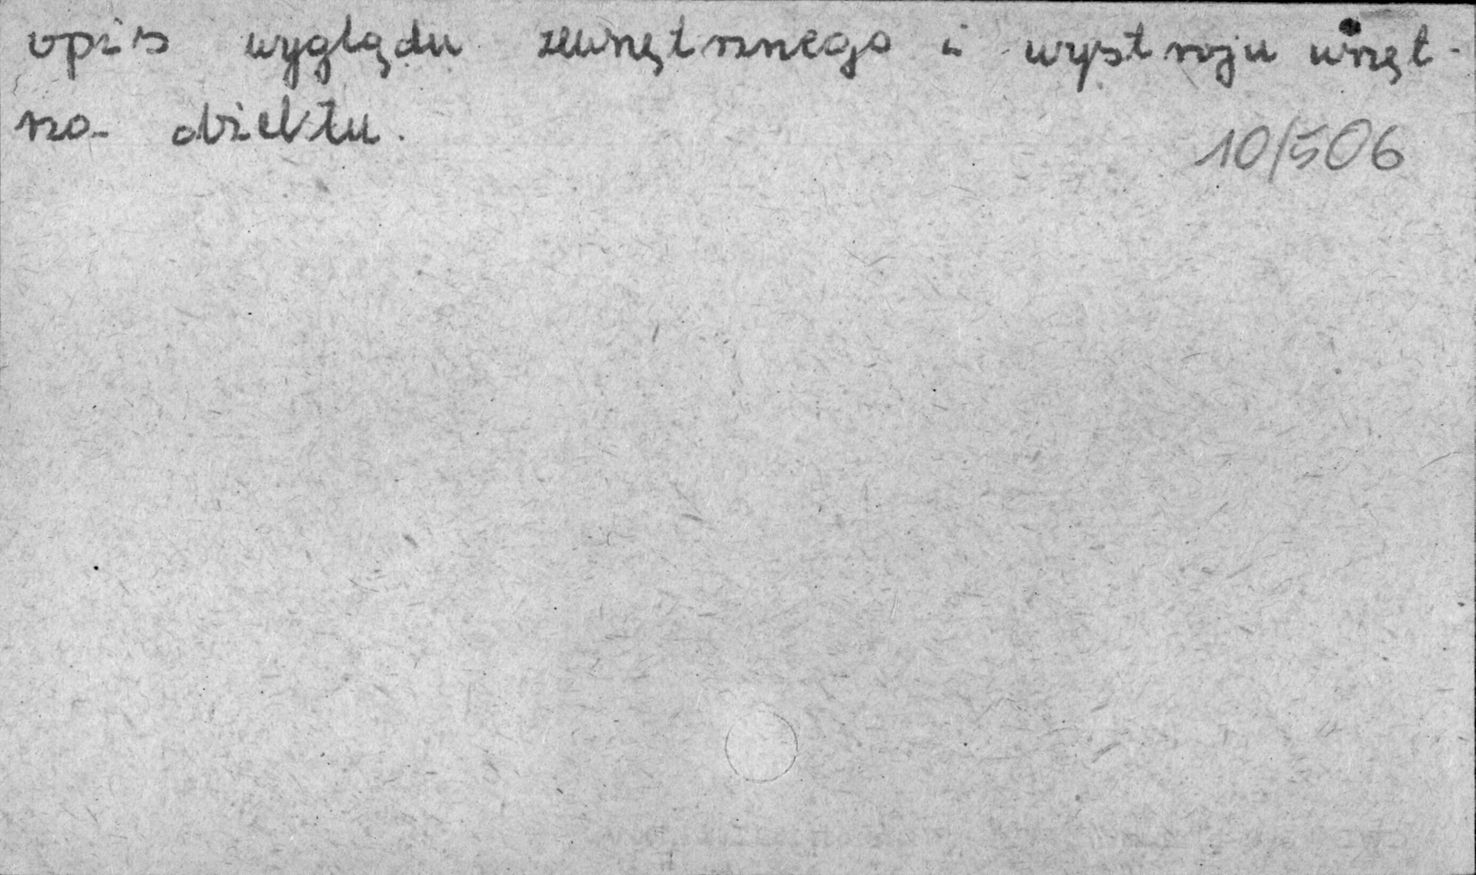 opis wyglądu zewnętrznego i wystroju wnęt-
rza obiektu.
10/506